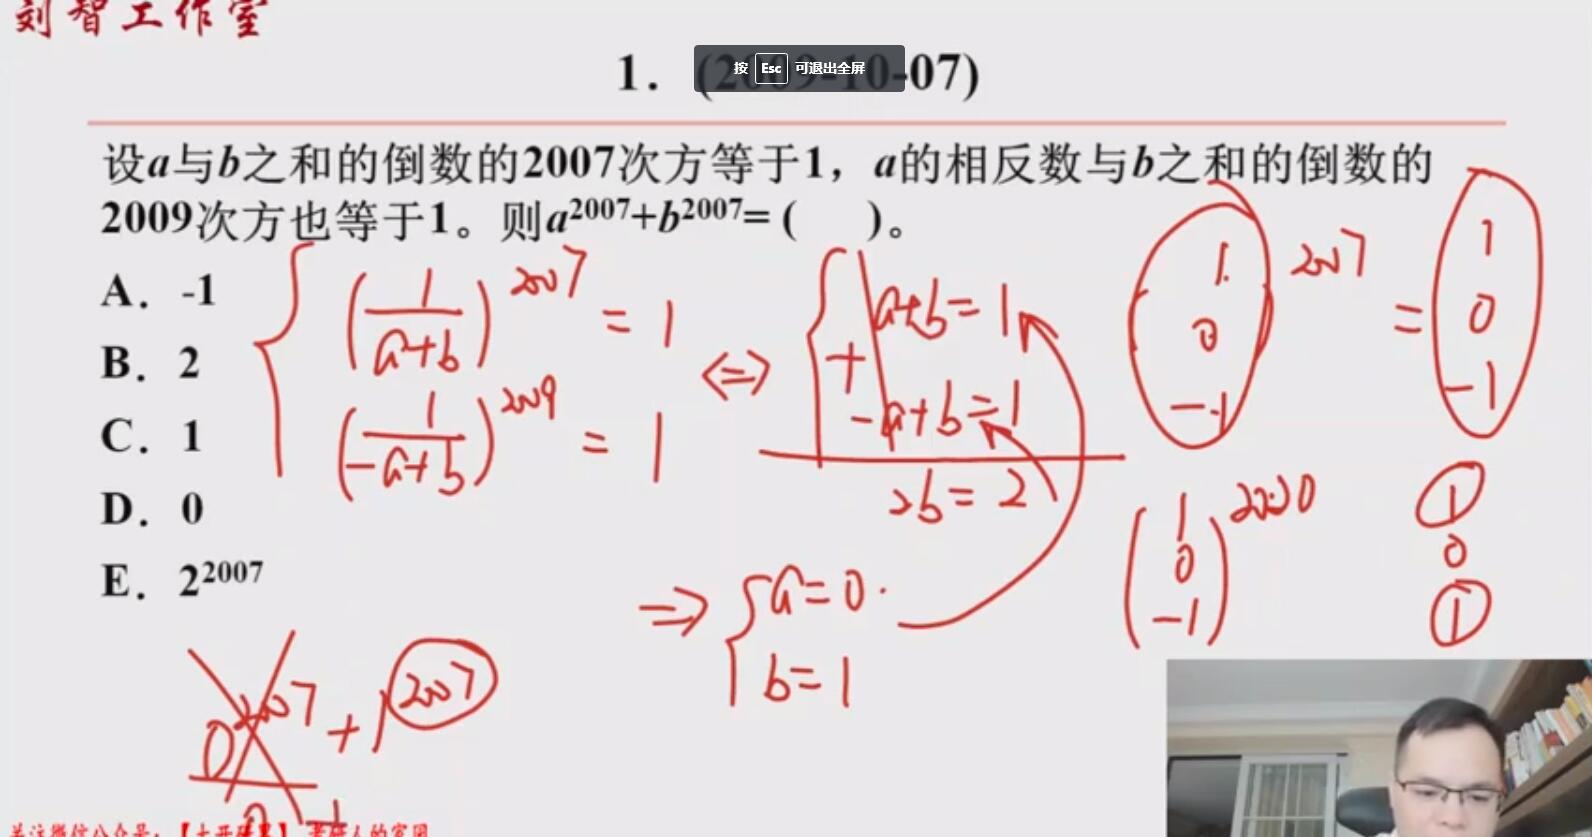 刘智工作室
1. (2009-10-07)
按 Esc 可退出全屏
设a与b之和的倒数的2007次方等于1，a的相反数与b之和的倒数的
2009次方也等于1。则a²⁰⁰⁷+b²⁰⁰⁷=(    )。
A. -1
B. 2
C. 1
D. 0
E. 2²⁰⁰⁷
(1/(a+b))²⁰⁰⁷ = 1
(1/(-a+b))²⁰⁰⁹ = 1
⇔
a+b=1
+
-a+b=1
2b=2
⇒
a=0
b=1
1 0 -1
2007
=
1 0 -1
(1 0 -1)²⁰²⁰
1
0
1
0²⁰⁰⁷ + 1²⁰⁰⁷